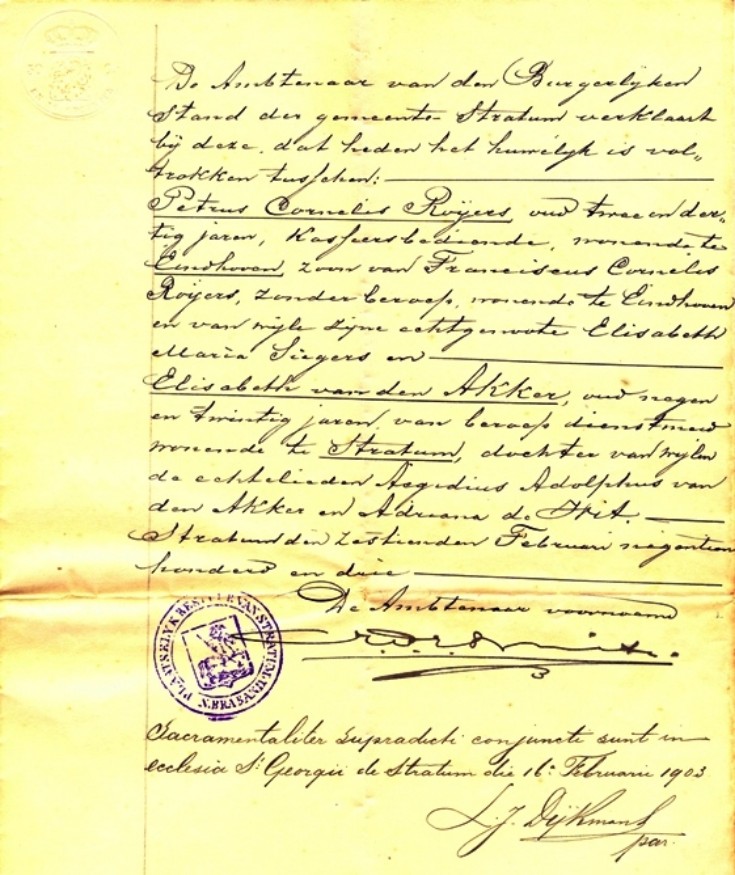 De Ambtenaar van den Burgerlijken
Stand der gemeente Stratum verklaart
bij deze, dat heden het huwelijk is vol„
trokken tusschen:
Petrus Cornelis Roijers, oud twee en der„
tig jaren, Kassiersbediende, wonende te
Eindhoven, zoon van Franciscus Cornelis
Roijers, zonder beroep, wonende te Eindhoven
en van wijle zijne echtgenoote Elisabeth
Maria Siegers en
Elisabeth van den Akker, oud negen
en twintig jaren, van beroep dienstmeid
wonende te Stratum, dochter van wijlen
de echtelieden Aegidius Adolphus van
den Akker en Adriana de Wit.
Stratum den zestienden Februari negentien
honderd en drie
De Ambtenaar voornoemd
PLAATSELYK BESTUUR VAN STRATUM IN N. BRABANT
Sacramentaliter supradicti conjuncti sunt in
ecclesia St. Georgii de Stratum die 16a Februarii 1903
L. J. Dijkmans
par.